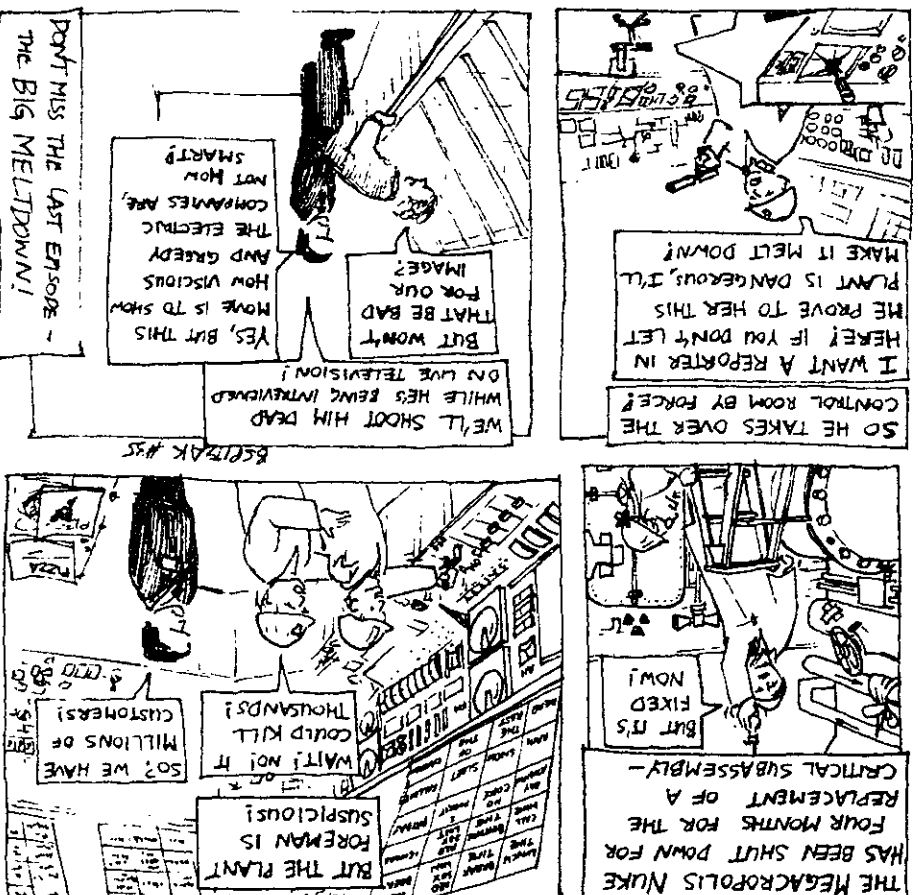 THE MEGACROPOLIS NUKE
HAS BEEN SHUT DOWN FOR
FOUR MONTHS FOR THE
REPLACEMENT OF A
CRITICAL SUBASSEMBLY —
BUT IT'S
FIXED
NOW!
BUT THE PLANT
FOREMAN IS
SUSPICIOUS!
WAIT! NO! IT
COULD KILL
THOUSANDS!
SO? WE HAVE
MILLIONS OF
CUSTOMERS!
PIZZA
SO HE TAKES OVER THE
CONTROL ROOM BY FORCE!
I WANT A REPORTER IN
HERE! IF YOU DON'T LET
ME PROVE TO HER THIS
PLANT IS DANGEROUS, I'LL
MAKE IT MELT DOWN!
WE'LL SHOOT HIM DEAD
WHILE HE'S BEING INTREVIEWED
ON LIVE TELEVISION!
BUT WON'T
THAT BE BAD
FOR OUR
IMAGE?
YES, BUT THIS
MOVIE IS TO SHOW
HOW VISCIOUS
AND GREEDY
THE ELECTRIC
COMPANIES ARE,
NOT HOW
SMART!
DON'T MISS THE LAST EPISODE -
THE BIG MELTDOWN!